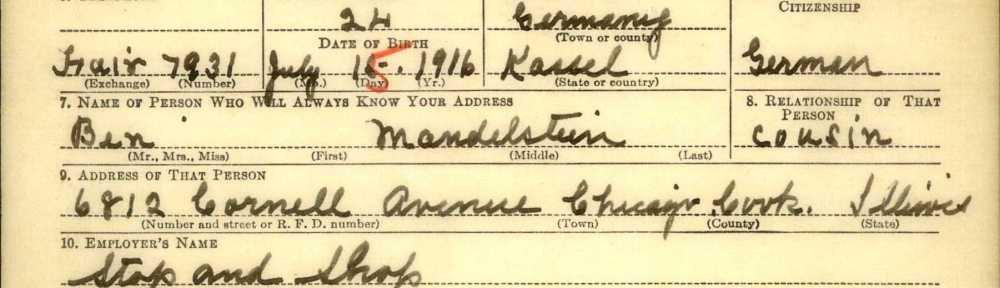 24 Germany CITIZENSHIP
DATE OF BIRTH (Town or county)
Fair 7931 July 15. 1916 Kassel German
(Exchange) (Number) (Mo.) (Day) (Yr.) (State or country)
7. NAME OF PERSON WHO WILL ALWAYS KNOW YOUR ADDRESS 8. RELATIONSHIP OF THAT PERSON
Ben Mandelstein cousin
(Mr., Mrs., Miss) (First) (Middle) (Last)
9. ADDRESS OF THAT PERSON
6812 Cornell Avenue Chicago Cook. Illinois
(Number and street or R. F. D. number) (Town) (County) (State)
10. EMPLOYER'S NAME
Stop and Shop